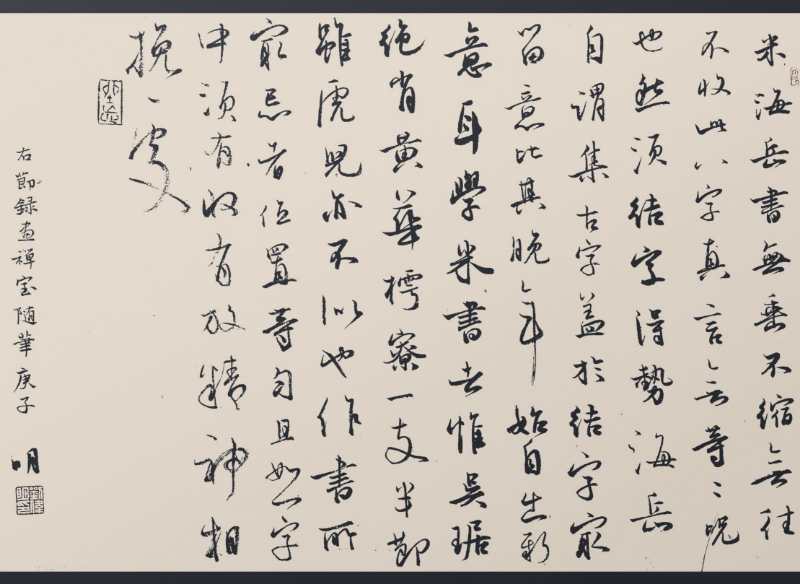 米海岳書無垂不縮無往
不收此八字真言無等〻呪
也然須結字得勢海岳
自謂集古字蓋於結字最
留意比其晚年始自出新
意耳學米書者惟吳琚
絶肖黃華樗寮一支半節
雖虎兒亦不似也作書所
最忌者位置等勻且如一字
中須有收有放精神相
挽處
右節録畫禪室随筆庚子 明